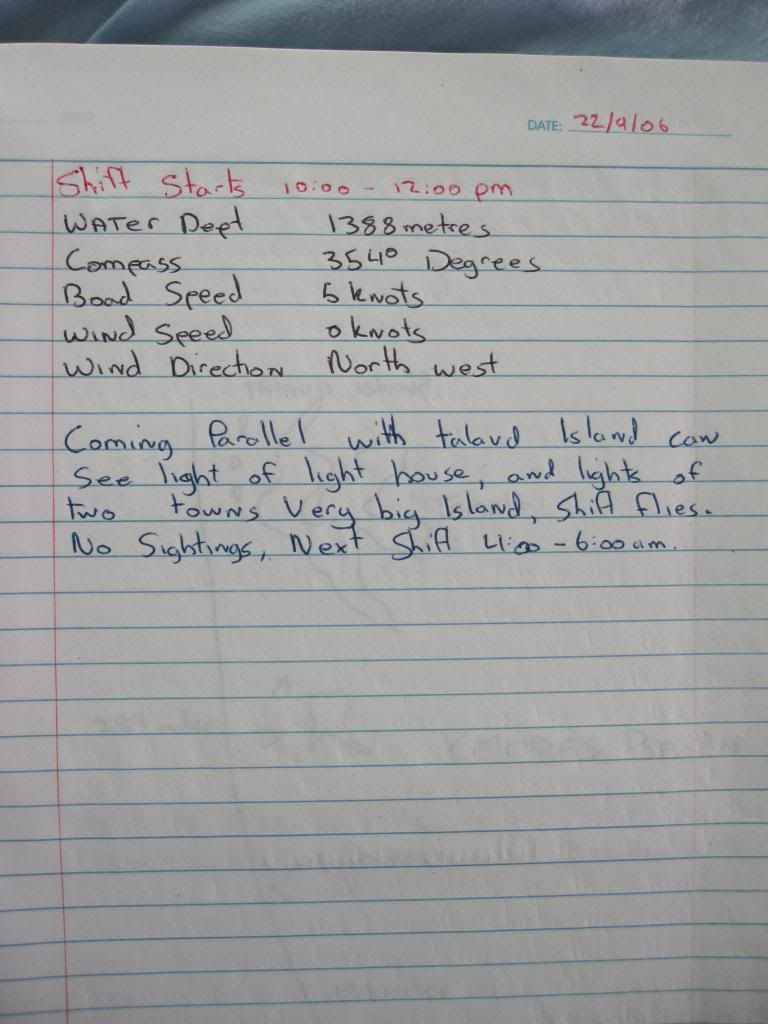 DATE: 22/9/06
Shift Starts 10:00 - 12:00 pm
WATer Dept 1388 metres
Compass 354° Degrees
Boad Speed 5 knots
Wind Speed 0 knots
Wind Direction North west
Coming Parallel with talaud Island can
See light of light house, and lights of
two towns Very big Island, Shift flies.
No Sightings, Next Shift 4:00 - 6:00 am.